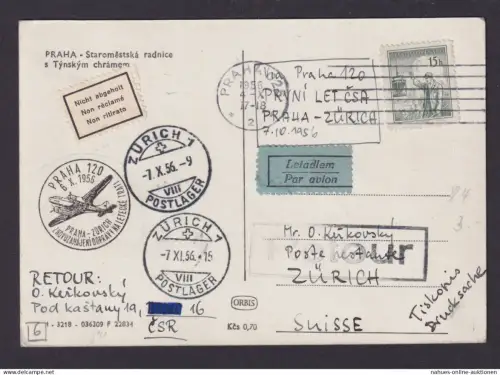 PRAHA - Staroměstská radnice
s Týnským chrámem
Nicht abgeholt
Non réclamé
Non ritirato
PRAHA 120
1956
17-18
2
via Praha 120
PRVNÍ LET ČSA
PRAHA - ZÜRICH
7.10.1956
15h
Letadlem
Par avion
ZÜRICH 1
-7.X.56.-9
VIII
POSTLAGER
PRAHA 120
6.X.1956
PRAHA - ZÜRICH
ZÜRICH 1
-7.XI.56.-15
VIII
POSTLAGER
Mr. O. Keřkovský
Poste restante
ZÜRICH
SUISSE
Tiskopis
Drucksache
RETOUR:
O. Keřkovský
Pod kaštany 19, 16
ČSR
6
- 3218 - 036309 F 22834
ORBIS
Kčs 0,70
www.nationales-online-auktionen